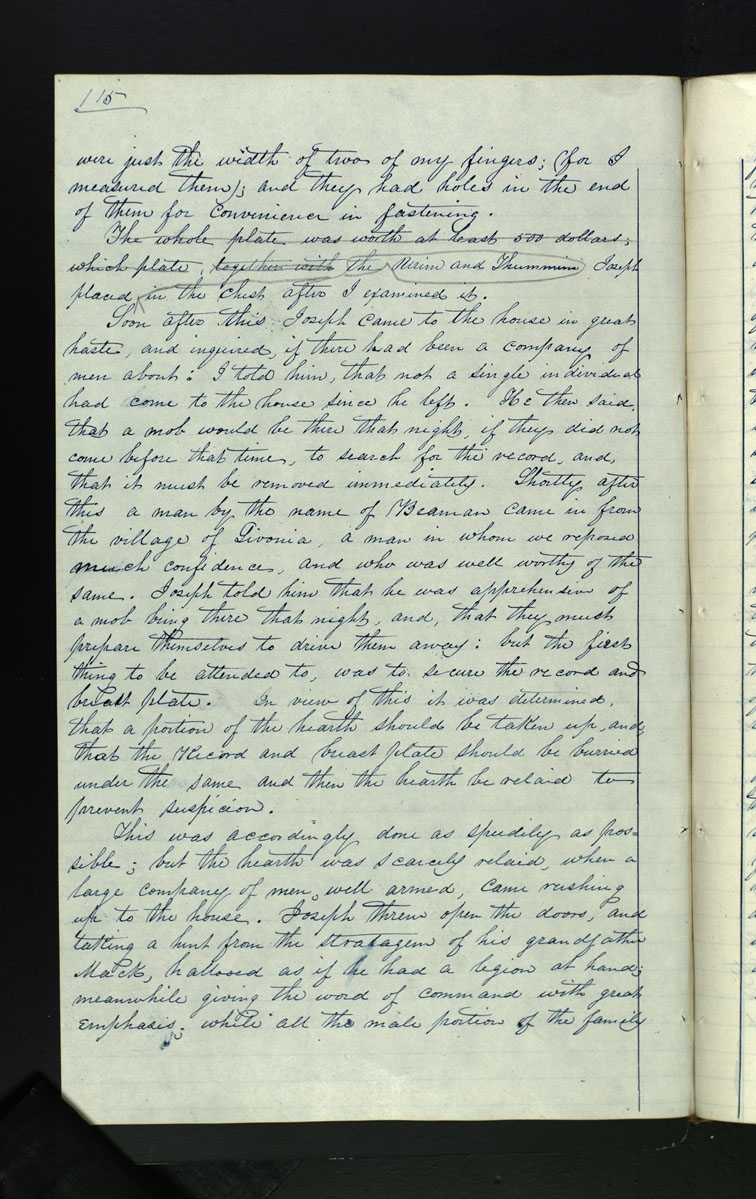 115
were just the width of two of my fingers; (for I
measured them); and they had holes in the end
of them for convenience in fastening.
The whole plate was worth at least 500 dollars;
which plate, together with the Urim and Thummim Joseph
placed in the chest after I examined it.
Soon after this Joseph came to the house in great
haste, and inquired, if there had been a company of
men about: I told him, that not a single individual
had come to the house since he left. He then said,
that a mob would be there that night, if they did not
come before that time, to search for the record, and,
that it must be removed immediately. Shortly after
this a man by the name of Beaman came in from
the village of Livonia, a man in whom we reposed
much confidence, and who was well worthy of the
same. Joseph told him that he was apprehensive of
a mob being there that night, and, that they must
prepare themselves to drive them away: but the first
thing to be attended to, was to secure the record and
breast plate. In view of this it was determined,
that a portion of the hearth should be taken up, and
that the Record and breast plate should be burried
under the same and then the hearth be relaid to
prevent suspicion.
This was accordingly done as speedily as pos=
sible; but the hearth was scarcely relaid, when a
large company of men, well armed, came rushing
up to the house. Joseph threw open the doors, and
taking a hint from the stratagem of his grandfather
Mack, hallooed as if he had a legion at hand;
meanwhile giving the word of command with great
emphasis; while all the male portion of the family